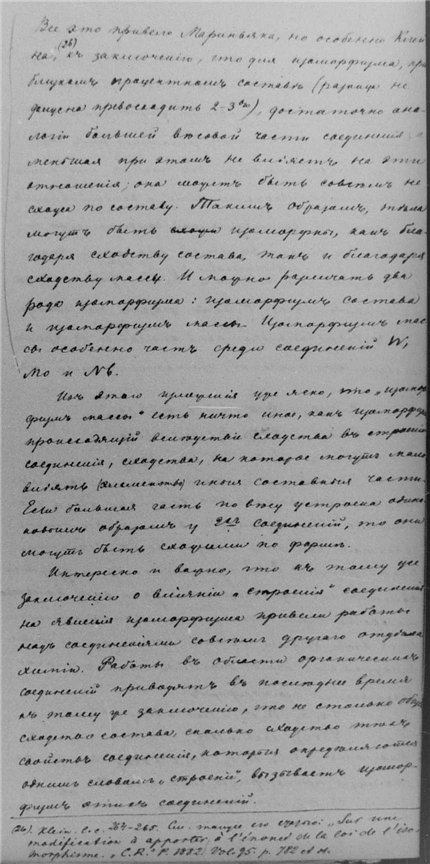 Все это привело Мариньяка, но особенно Клей-
на,(26) къ заключенію, что для изоморфизма, при
близкомъ процентномъ составѣ (разница не
должна превосходить 2-3%), достаточно ана-
логіи большей вѣсовой части соединенія, а
меньшая при этомъ не вліяетъ на эти
отношенія; она можетъ быть совсѣмъ не
сходна по составу. Такимъ образомъ, тѣла
могутъ быть изоморфны, какъ бла-
годаря сходству состава, такъ и благодаря
сходству массы. И можно различать два
рода изоморфизма: изоморфизмъ состава
и изоморфизмъ массы. Изоморфизмъ мас-
сы особенно частъ среди соединеній W,
Mo и Nb.
Изъ этого изложенія уже ясно, что „изомор-
физмъ массы" есть ничто иное, какъ изоморфизмъ
происходящій вслѣдствіе сходства въ строеніи
соединенія, сходства, на которое могутъ мало
вліять (элементы) иныя составныя части.
Если большая часть по вѣсу устроена одина-
ковымъ образомъ у двухъ соединеній, то они
могутъ быть сходными по формѣ.
Интересно и важно, что къ тому же
заключенію о вліяніи „строенія" соединенія
на явленія изоморфизма привели работы
надъ соединеніями совсѣмъ другаго отдѣла
химіи. Работы въ области органическихъ
соединеній приводятъ въ послѣднее время
къ тому же заключенію, что не столько
сходство состава, сколько сходство тѣхъ
свойствъ соединеній, которыя опредѣляются
однимъ словомъ „строеніе", вызываетъ изомор-
физмъ этихъ соединеній.
(26) Klein. l. c. 264-265. См. также его статью „Sur une
modification à apporter à l'énoncé de la loi de l'iso-
morphisme". C. R. P. 1882. Vol. 95. p. 782